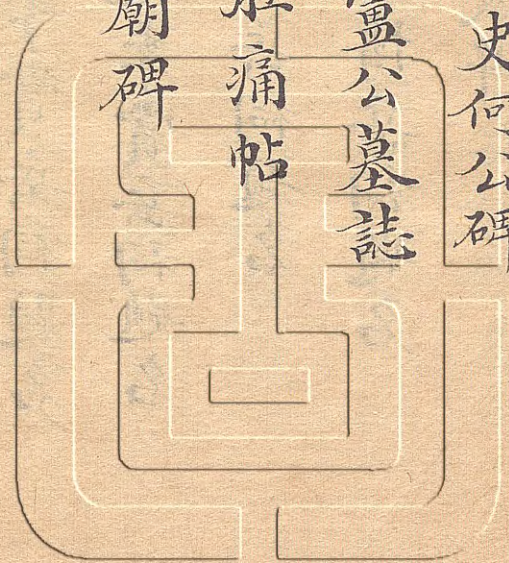 史何公碑
盧公墓誌
肚痛帖
廟碑